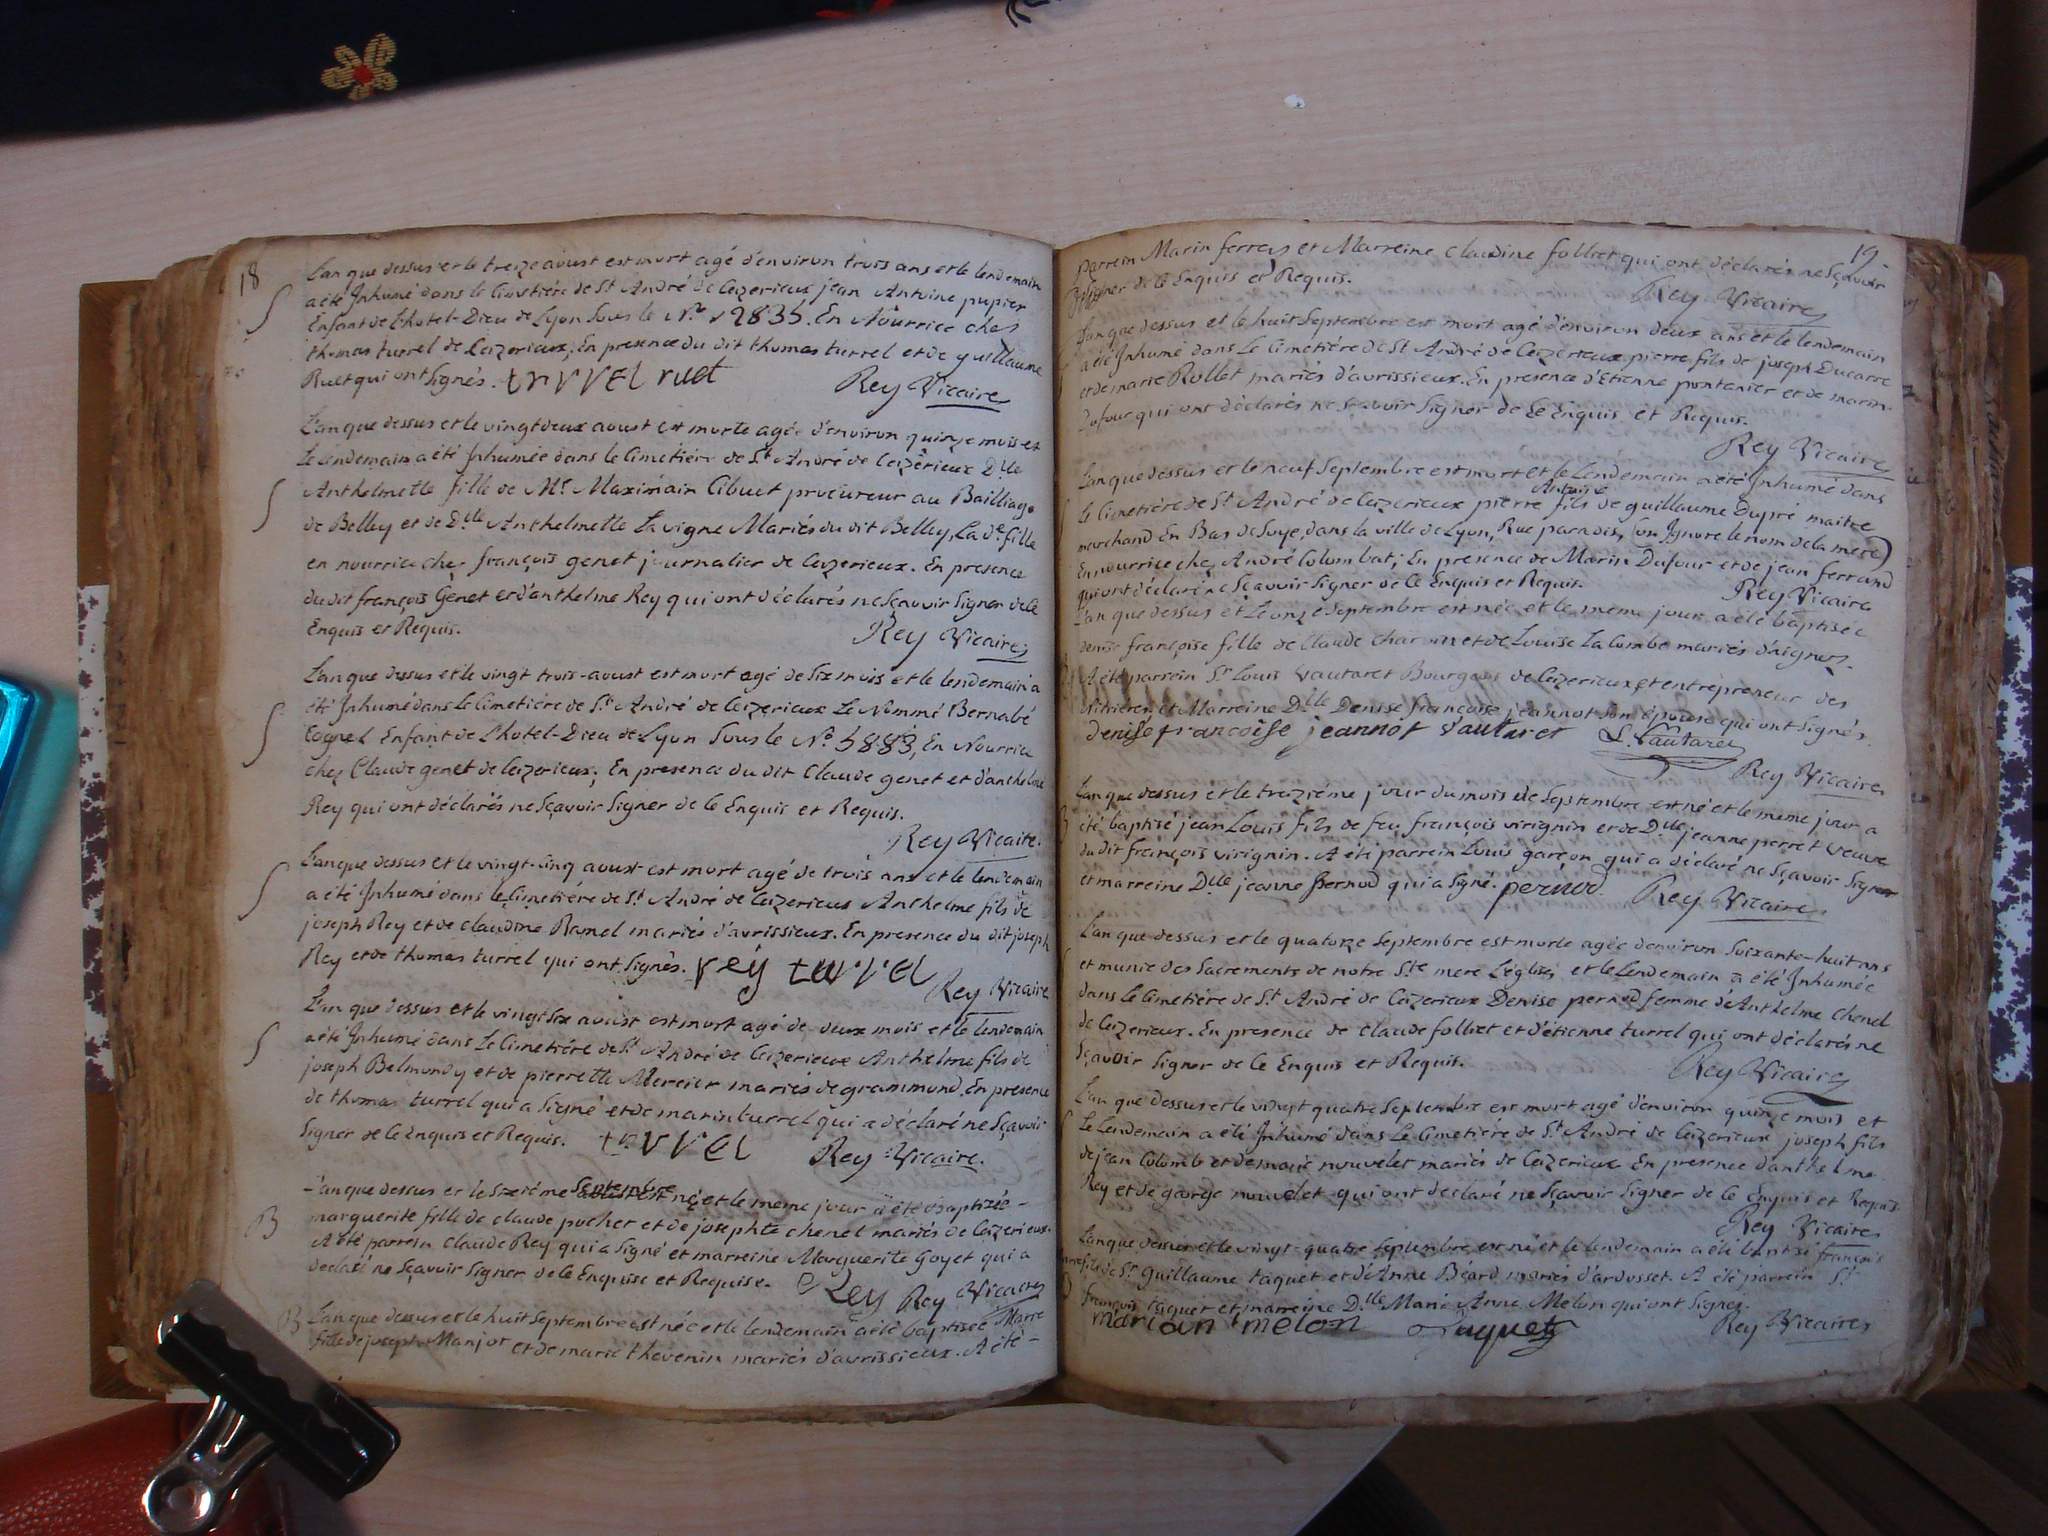 18
L'an que dessus et le treize aoust est mort agé d'environ trois ans et le lendemain
a été Inhumé dans le Cimetiére de St André de Ceizerieux jean Antoine pupier
Enfant de L'hotel-Dieu de Lyon sous le No 2835. En Nourrice ches
thomas turrel de Ceizerieux; En presence du dit thomas turrel et de guillaume
Ruet qui ont signés. turrel ruet Rey Vicaire
L'an que dessus et le vingt deux aoust est morte agée d'environ quinze mois et
Le lendemain a été Inhumée dans le Cimetiére de St André de Ceizérieux Dlle
Anthelmette fille de Mr Maximain Cibuet procureur au Bailliage
de Belley et de Dlle Anthelmette Lavigne Mariés du dit Belley, La de fille
en nourrice chez françois genet journalier de Ceizerieux. En presence
du dit françois Genet et d'anthelme Rey qui ont déclarés ne sçavoir signer de ce
Enquis et Requis. Rey Vicaire
L'an que dessus et le vingt trois aoust est mort agé de six mois et le lendemain a
été Inhumé dans Le Cimetiére de St André de Ceizerieux Le Nommé Bernabé
Cognel Enfant de L'hotel-Dieu de Lyon sous le No 5883, En Nourrice
chez Claude genet de Ceizerieux; En presence du dit Claude genet et d'anthelme
Rey qui ont déclarés ne sçavoir signer de ce Enquis et Requis.
Rey Vicaire.
L'an que dessus et le vingt-cinq aoust est mort agé de trois ans et le lendemain
a été Inhumé dans le Cimetiére de St André de Ceizerieux Anthelme fils de
joseph Rey et de claudine Ramel mariés d'avrissieux. En presence du dit joseph
Rey et de thomas turrel qui ont signés. rey turrel
Rey Vicaire
L'an que dessus et le vingt six aoust est mort agé de deux mois et le lendemain
a été Inhumé dans Le Cimetiére de St André de Ceizerieux Anthelme fils de
joseph Belmondy et de pierrette Mercier mariés de grammond. En presence
de thomas turrel qui a signé et de marin turrel qui a déclaré ne sçavoir
signer de ce Enquis et Requis. turrel Rey Vicaire.
B L'an que dessus et le sixième septembre est né et le meme jour a été baptizée
marguerite fille de claude pocher et de josephte chenel mariés de Ceizerieux.
A été parrein claude Rey qui a signé et marreine Marguerite Goyet qui a
déclaré ne sçavoir signer de ce Enquise et Requise. Rey Rey Vicaire
B L'an que dessus et le huit septembre est née et le lendemain a été baptisée Marie
fille de joseph Manjot et de marie thevenin mariés d'avrissieux. A été
19
parrein Marin ferrey et Marreine claudine folliet qui ont déclarés ne sçavoir
signer de ce Enquis et Requis. Rey Vicaire
L'an que dessus et le huit septembre est mort agé d'environ deux ans et le lendemain
a été Inhumé dans Le Cimetiére de St André de Ceizerieux pierre fils de joseph Ducarre
et de marie Rollet mariés d'avrissieux. En presence d'Etienne pontanier et de marin
Dufour qui ont déclarés ne sçavoir signer de ce Enquis et Requis.
Rey Vicaire
L'an que dessus et le neuf septembre est mort et le Lendemain a été Inhumé dans
le Cimetiére de St André de Ceizerieux pierre Antoine fils de guillaume Dupré maitre
marchand En Bas de soye, dans la ville de Lyon, Rue paradis, (on Ignore le nom de la mere)
En nourrice chez André Colombat; En presence de Marin Dufour et de jean ferrand
qui ont déclaré ne sçavoir signer de ce Enquis et Requis. Rey Vicaire
L'an que dessus et Le onze septembre est née et le meme jour a été baptisée
denise françoise fille de Claude et de Louise La combe mariés d'aignes.
A été parrein Sr Louis Vautaret Bourgeois de Ceizerieux et entrepreneur des
et Marreine Dlle Denise françoise jeannot son épouse qui ont signés.
denise françoise jeannot vautaret L. Vautaret
Rey Vicaire.
L'an que dessus et le treizième jour du mois de septembre est né et le meme jour a
été baptisé jean Louis fils de feu françois virignin et de Dlle jeanne perret veuve
du dit françois virignin. A été parrein Louis garçon qui a déclaré ne sçavoir signer
et marreine Dlle jeanne pernod qui a signé. pernod. Rey Vicaire
L'an que dessus et le quatorze septembre est morte agée d'environ soixante-huit ans
et munie des Sacrements de notre Ste mere L'église, et le Lendemain a été Inhumée
dans Le Cimetiére de St André de Ceizerieux Denise pernod femme de Anthelme chenel
de Ceizerieux. En presence de claude folliet et d'étienne turrel qui ont déclarés ne
sçavoir signer de ce Enquis et Requis. Rey Vicaire
L'an que dessus et le vingt quatre septembre est mort agé d'environ quinze mois et
Le Lendemain a été Inhumé dans Le Cimetiére de St André de Ceizerieux joseph fils
de jean Colomb et de marie nouvelet mariés de Ceizerieux En presence d'anthelme
Rey et de george nouvelet qui ont déclaré ne sçavoir signer de ce Enquis et Requis.
Rey Vicaire
L'an que dessus et le vingt-quatre septembre est né et le lendemain a été baptisé françois
fils de Sr Guillaume taquet et d'Anne Béard mariés d'ardosset. A été parrein Sr
françois taquet et marreine Dlle Marie Anne Melon qui ont signés.
marian melon Taquet Rey Vicaire